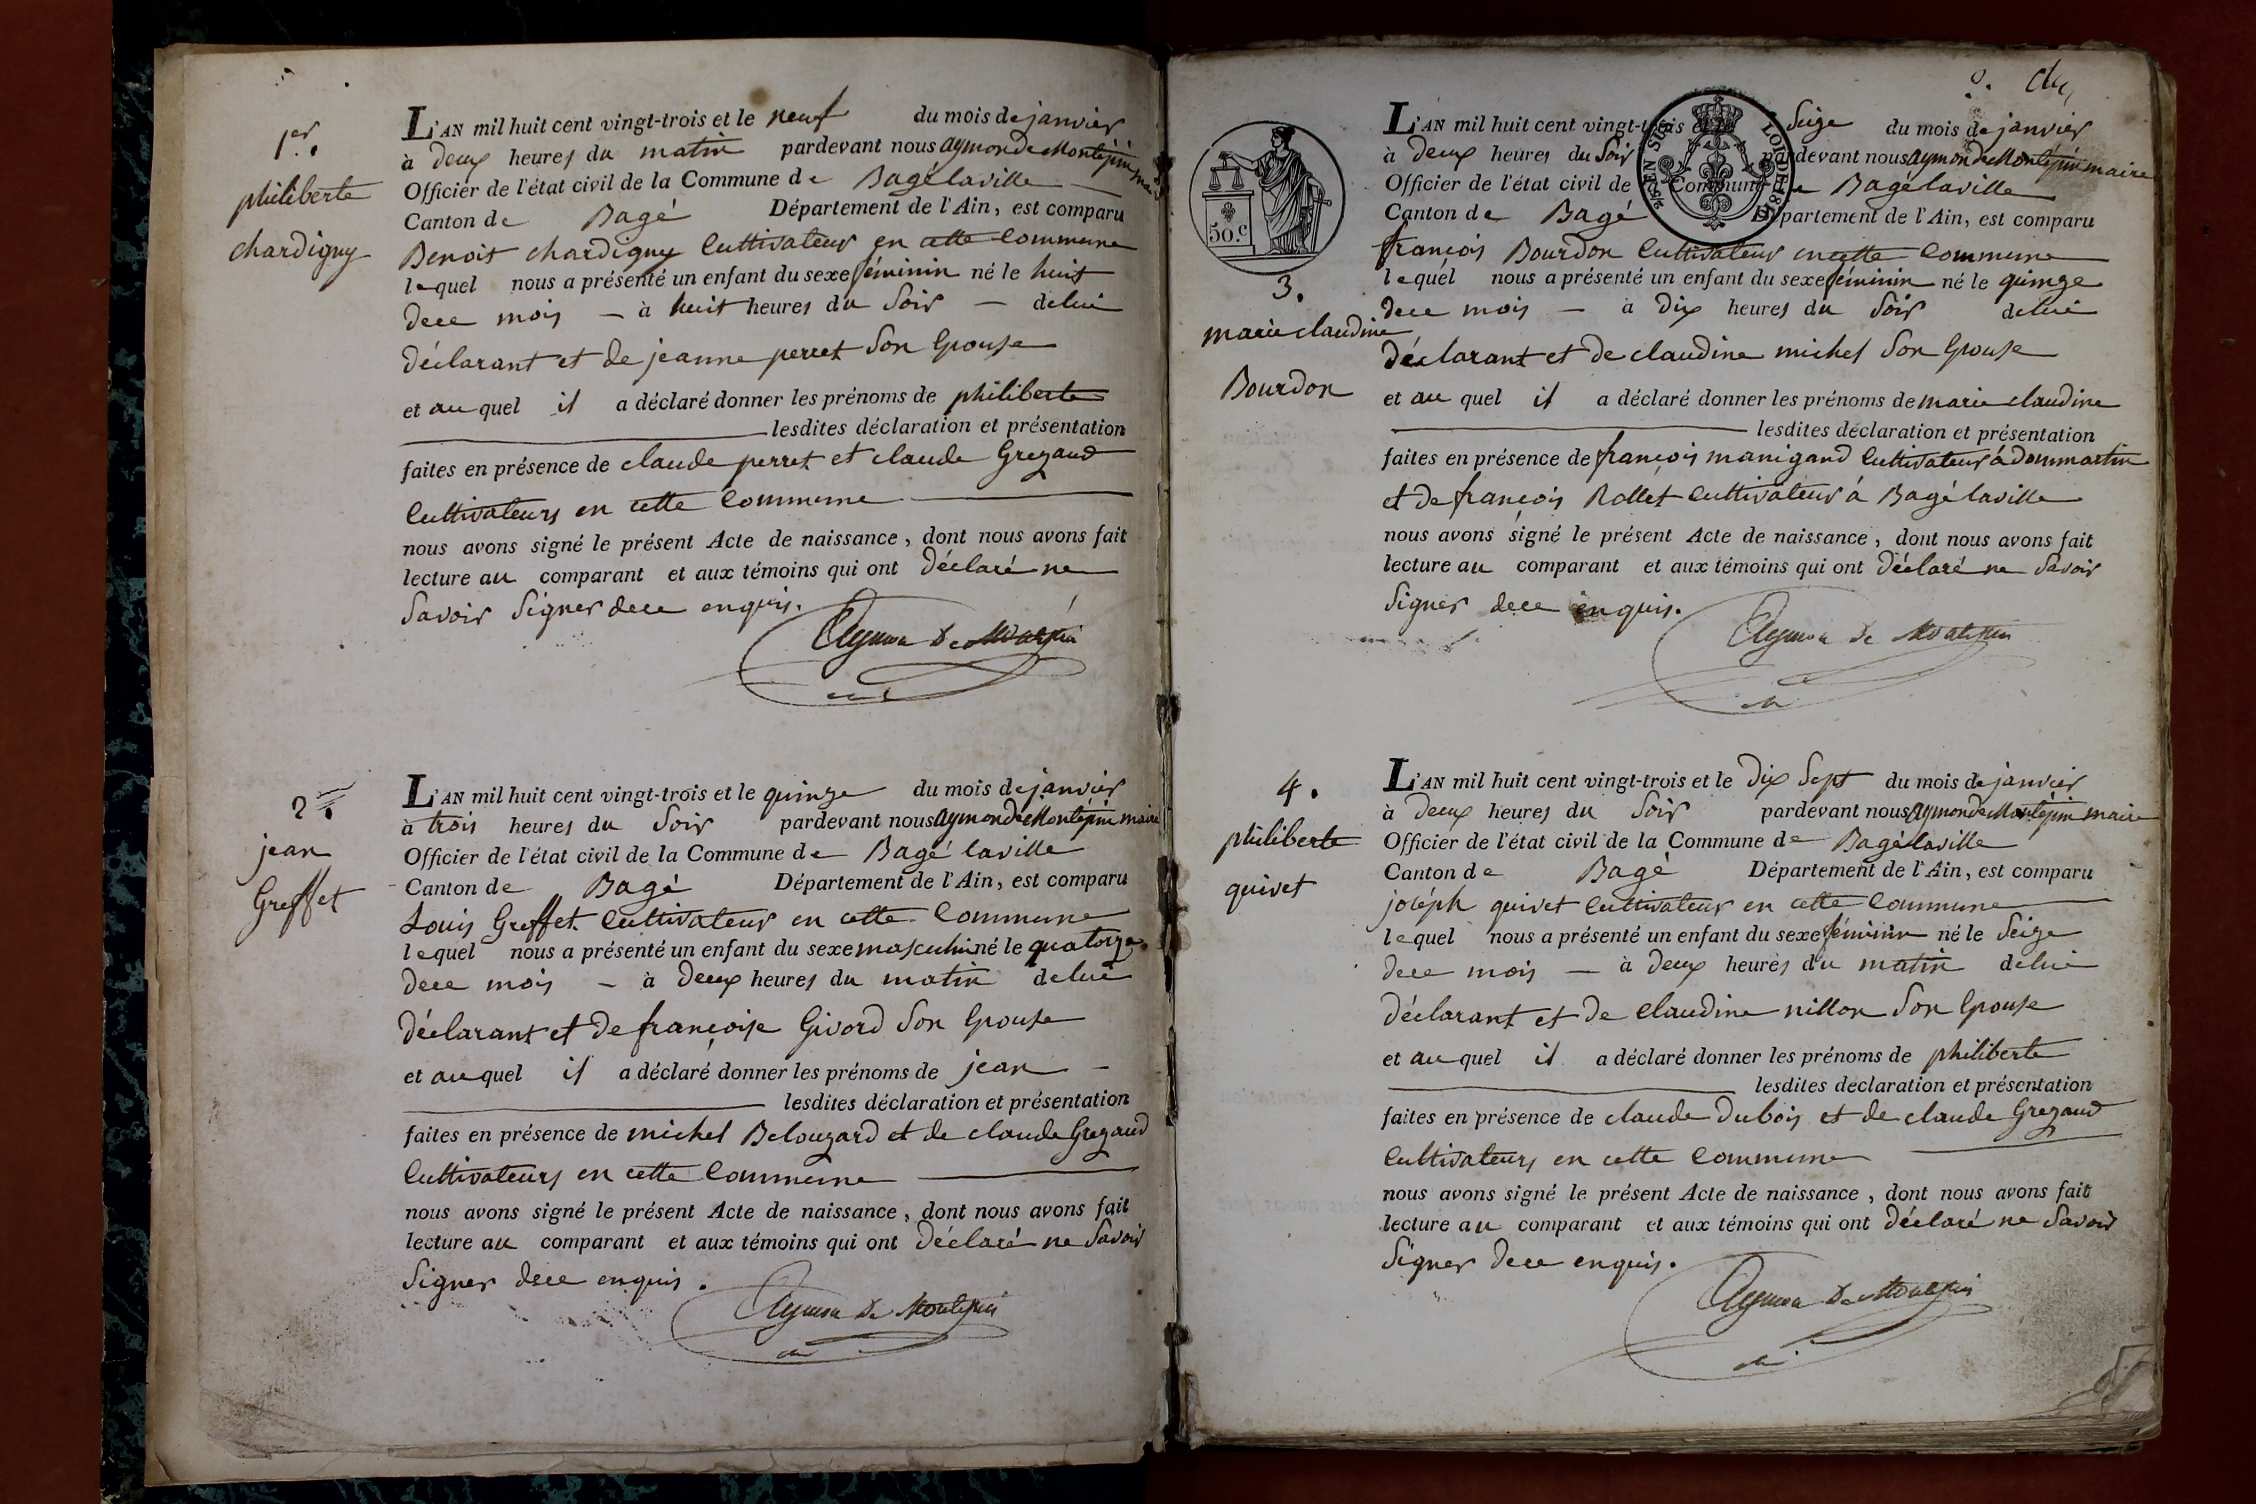 1er.
philiberte
chardigny
L'AN mil huit cent vingt-trois et le neuf du mois de janvier
à deux heures du matin pardevant nous aymon de Montépin maire
Officier de l'état civil de la Commune de Bagé laville
Canton de Bagé Département de l'Ain, est comparu
Benoit chardigny Cultivateur en cette Commune
lequel nous a présenté un enfant du sexe féminin né le huit
dece mois — à huit heures du Soir — delui
déclarant et de jeanne perret Son Epouse
et au quel il a déclaré donner les prénoms de philiberte
lesdites déclaration et présentation
faites en présence de claude perret et claude Grezaud
Cultivateurs en cette Commune
nous avons signé le présent Acte de naissance, dont nous avons fait
lecture au comparant et aux témoins qui ont déclaré ne
Savoir Signer dece enquis.
Aymon de Montépin
2.
jean
Greffet
L'AN mil huit cent vingt-trois et le quinze du mois de janvier
à trois heures du Soir pardevant nous aymon de Montépin maire
Officier de l'état civil de la Commune de Bagé laville
Canton de Bagé Département de l'Ain, est comparu
Louis Greffet Cultivateur en cette Commune
lequel nous a présenté un enfant du sexe masculin né le quatorze
dece mois — à deux heures du matin delui
déclarant et de françoise Givord Son Epouse
et au quel il a déclaré donner les prénoms de jean —
lesdites déclaration et présentation
faites en présence de michel Belouzard et de claude Grezaud
Cultivateurs en cette Commune
nous avons signé le présent Acte de naissance, dont nous avons fait
lecture au comparant et aux témoins qui ont déclaré ne Savoir
Signer dece enquis.
Aymon de Montépin
2.
50.c
EN SUS
LOI DE 18
3.
marie claudine
Bourdon
L'AN mil huit cent vingt-trois et le Seize du mois de janvier
à deux heures du Soir pardevant nous aymon de Montépin maire
Officier de l'état civil de la Commune de Bagé laville
Canton de Bagé Département de l'Ain, est comparu
françois Bourdon Cultivateur en cette Commune
lequel nous a présenté un enfant du sexe féminin né le quinze
dece mois — à dix heures du Soir delui
déclarant et de claudine michel Son Epouse
et au quel il a déclaré donner les prénoms de marie claudine
lesdites déclaration et présentation
faites en présence de françois manigand Cultivateur à dommartin
et de françois Rollet Cultivateur à Bagé laville
nous avons signé le présent Acte de naissance, dont nous avons fait
lecture au comparant et aux témoins qui ont déclaré ne Savoir
Signer dece enquis.
Aymon de Montépin
4.
philiberte
quivet
L'AN mil huit cent vingt-trois et le dix Sept du mois de janvier
à deux heures du Soir pardevant nous aymon de Montépin maire
Officier de l'état civil de la Commune de Bagé laville
Canton de Bagé Département de l'Ain, est comparu
joséph quivet Cultivateur en cette Commune
lequel nous a présenté un enfant du sexe féminin né le Seize
dece mois — à deux heures du matin delui
déclarant et de Claudine nillon Son Epouse
et au quel il a déclaré donner les prénoms de philiberte
lesdites déclaration et présentation
faites en présence de claude dubois et de claude Grezaud
Cultivateurs en cette Commune
nous avons signé le présent Acte de naissance, dont nous avons fait
lecture au comparant et aux témoins qui ont déclaré ne Savoir
Signer dece enquis.
Aymon de Montépin